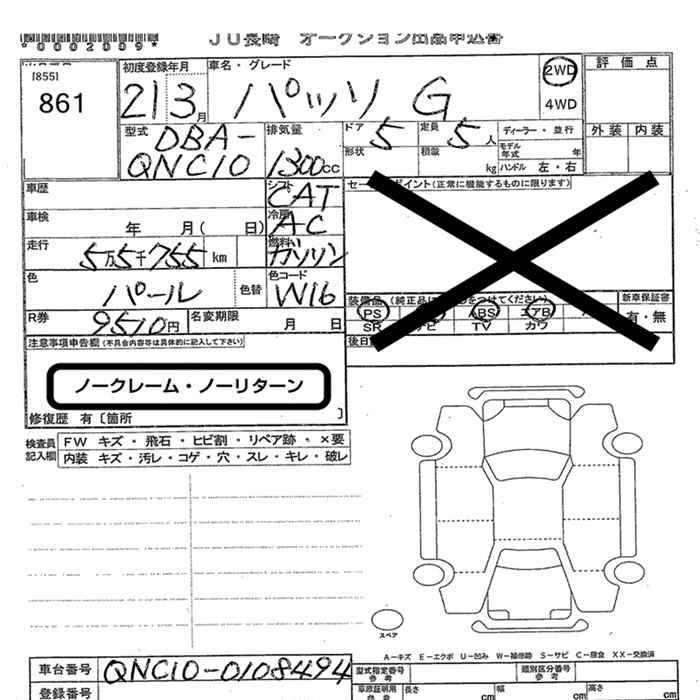 *0002009*
JU長崎 オークション出品申込書
[855]
861
初度登録年月 車名・グレード 2WD 評価点
21 3月 パッソ G 4WD
型式 排気量 ドア 定員 ディーラー・並行 外装 内装
DBA- 5 5人 モデル年式 年
QNC10 1300cc 形状 積載 kg ハンドル 左・右
車歴 シフト CAT (正常に機能するものに限ります)
車検 年 月( 日) 冷房 AC
走行 5万5千755 km 燃料 ガソリン
色 パール 色替 色コード W16 装備品 (純正品に つけてください) 新車保証書
PS ABS エアB 有・無
R券 9510円 名変期限 月 日 SR ナビ TV カワ
注意事項申告欄(不具合内容等は具体的に記入して下さい) 後日
ノークレーム・ノーリターン
修復歴 有〔箇所 〕
検査員記入欄 FW キズ・飛石・ヒビ割・リペア跡・×要
内装 キズ・汚レ・コゲ・穴・スレ・キレ・破レ
スペア
A-キズ E-エクボ U-凹み W-補修跡 S-サビ C-腐食 XX-交換済
車台番号 QNC10-0108494 型式指定番号 参考 類別区分番号 参考
登録番号 長さ cm 幅 cm 高さ cm